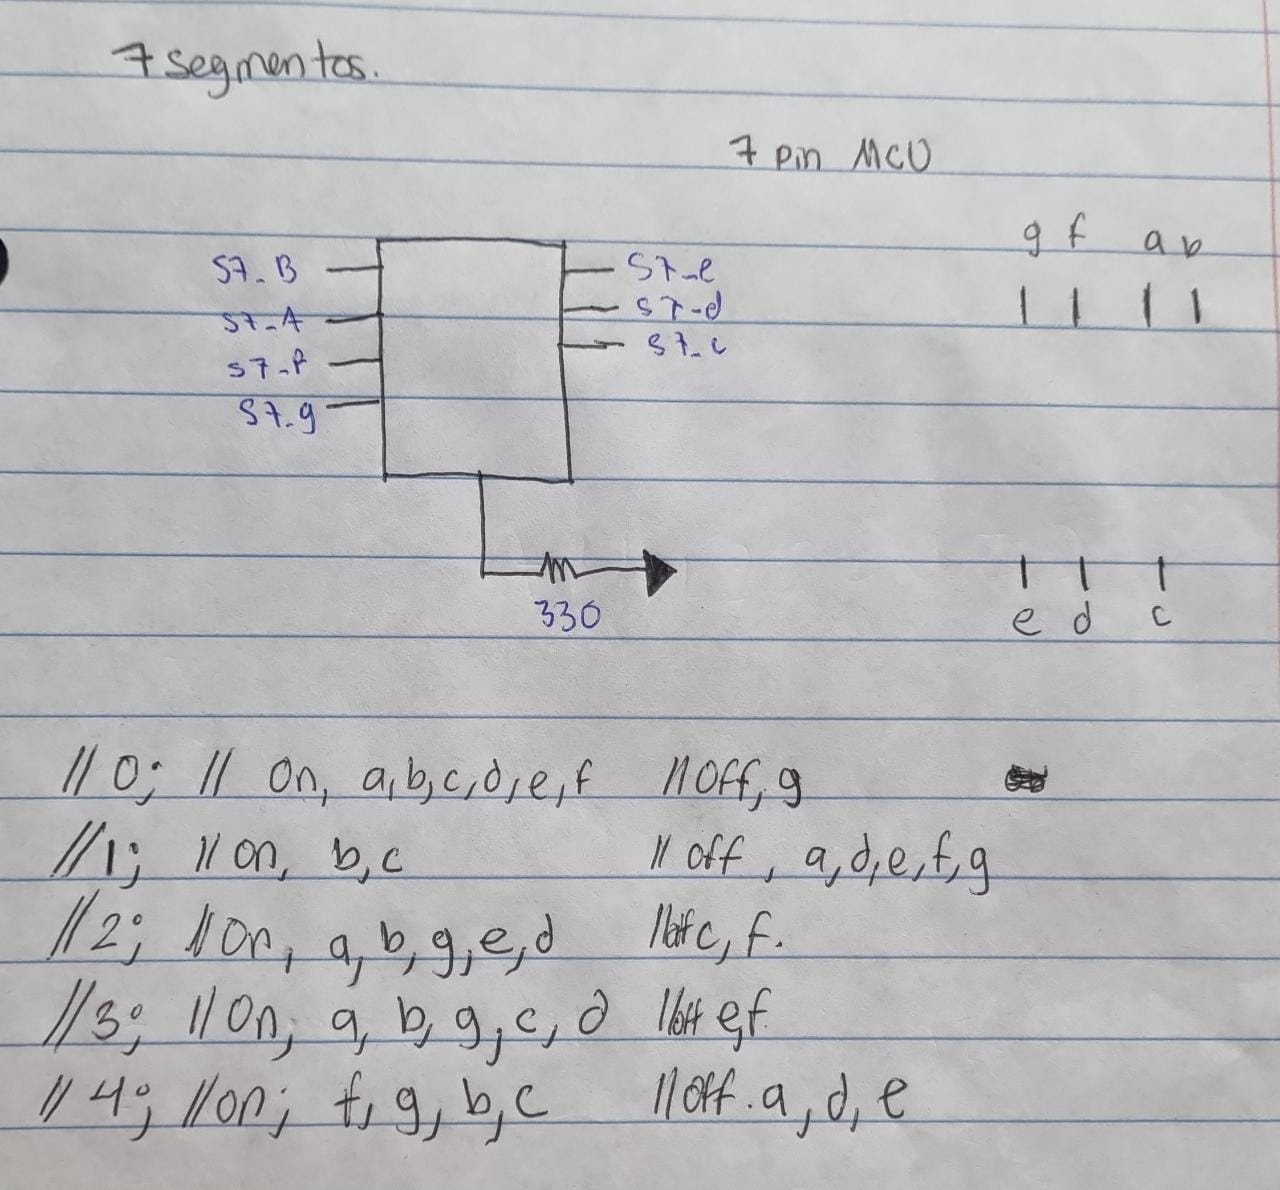 7 segmentos.
7 pin MCU
g f a b
S7_B
S7_A
S7_f
S7_g
S7_e
S7_d
S7_c
330
e d c
// 0; // On, a,b,c,d,e,f //Off, g
//1; // on, b,c // off, a,d,e,f,g
//2; // On, a, b, g, e, d //off c, f.
//3; // On; a, b, g, c, d //off e,f
// 4; //on; f, g, b, c //Off. a, d, e